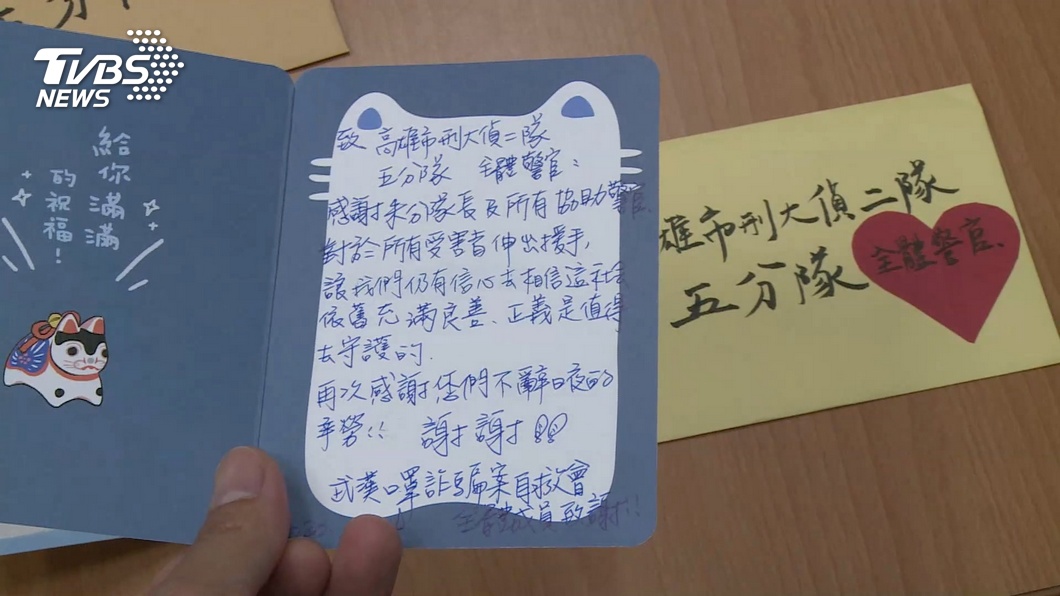 TVBS
NEWS
給你滿滿
的祝福！
致 高雄市刑大偵二隊
五分隊 全體警官：
感謝朱分隊長及所有協助警官、
對於所有受害者伸出援手，
讓我們仍有信心去相信這社會
依舊充滿良善、正義是值得
去守護的．
再次感謝您們不辭日夜的
辛勞!! 謝謝
武漢口罩詐騙案自救會
全體成員致謝!!
雄市刑大偵二隊
五分隊
全體警官、